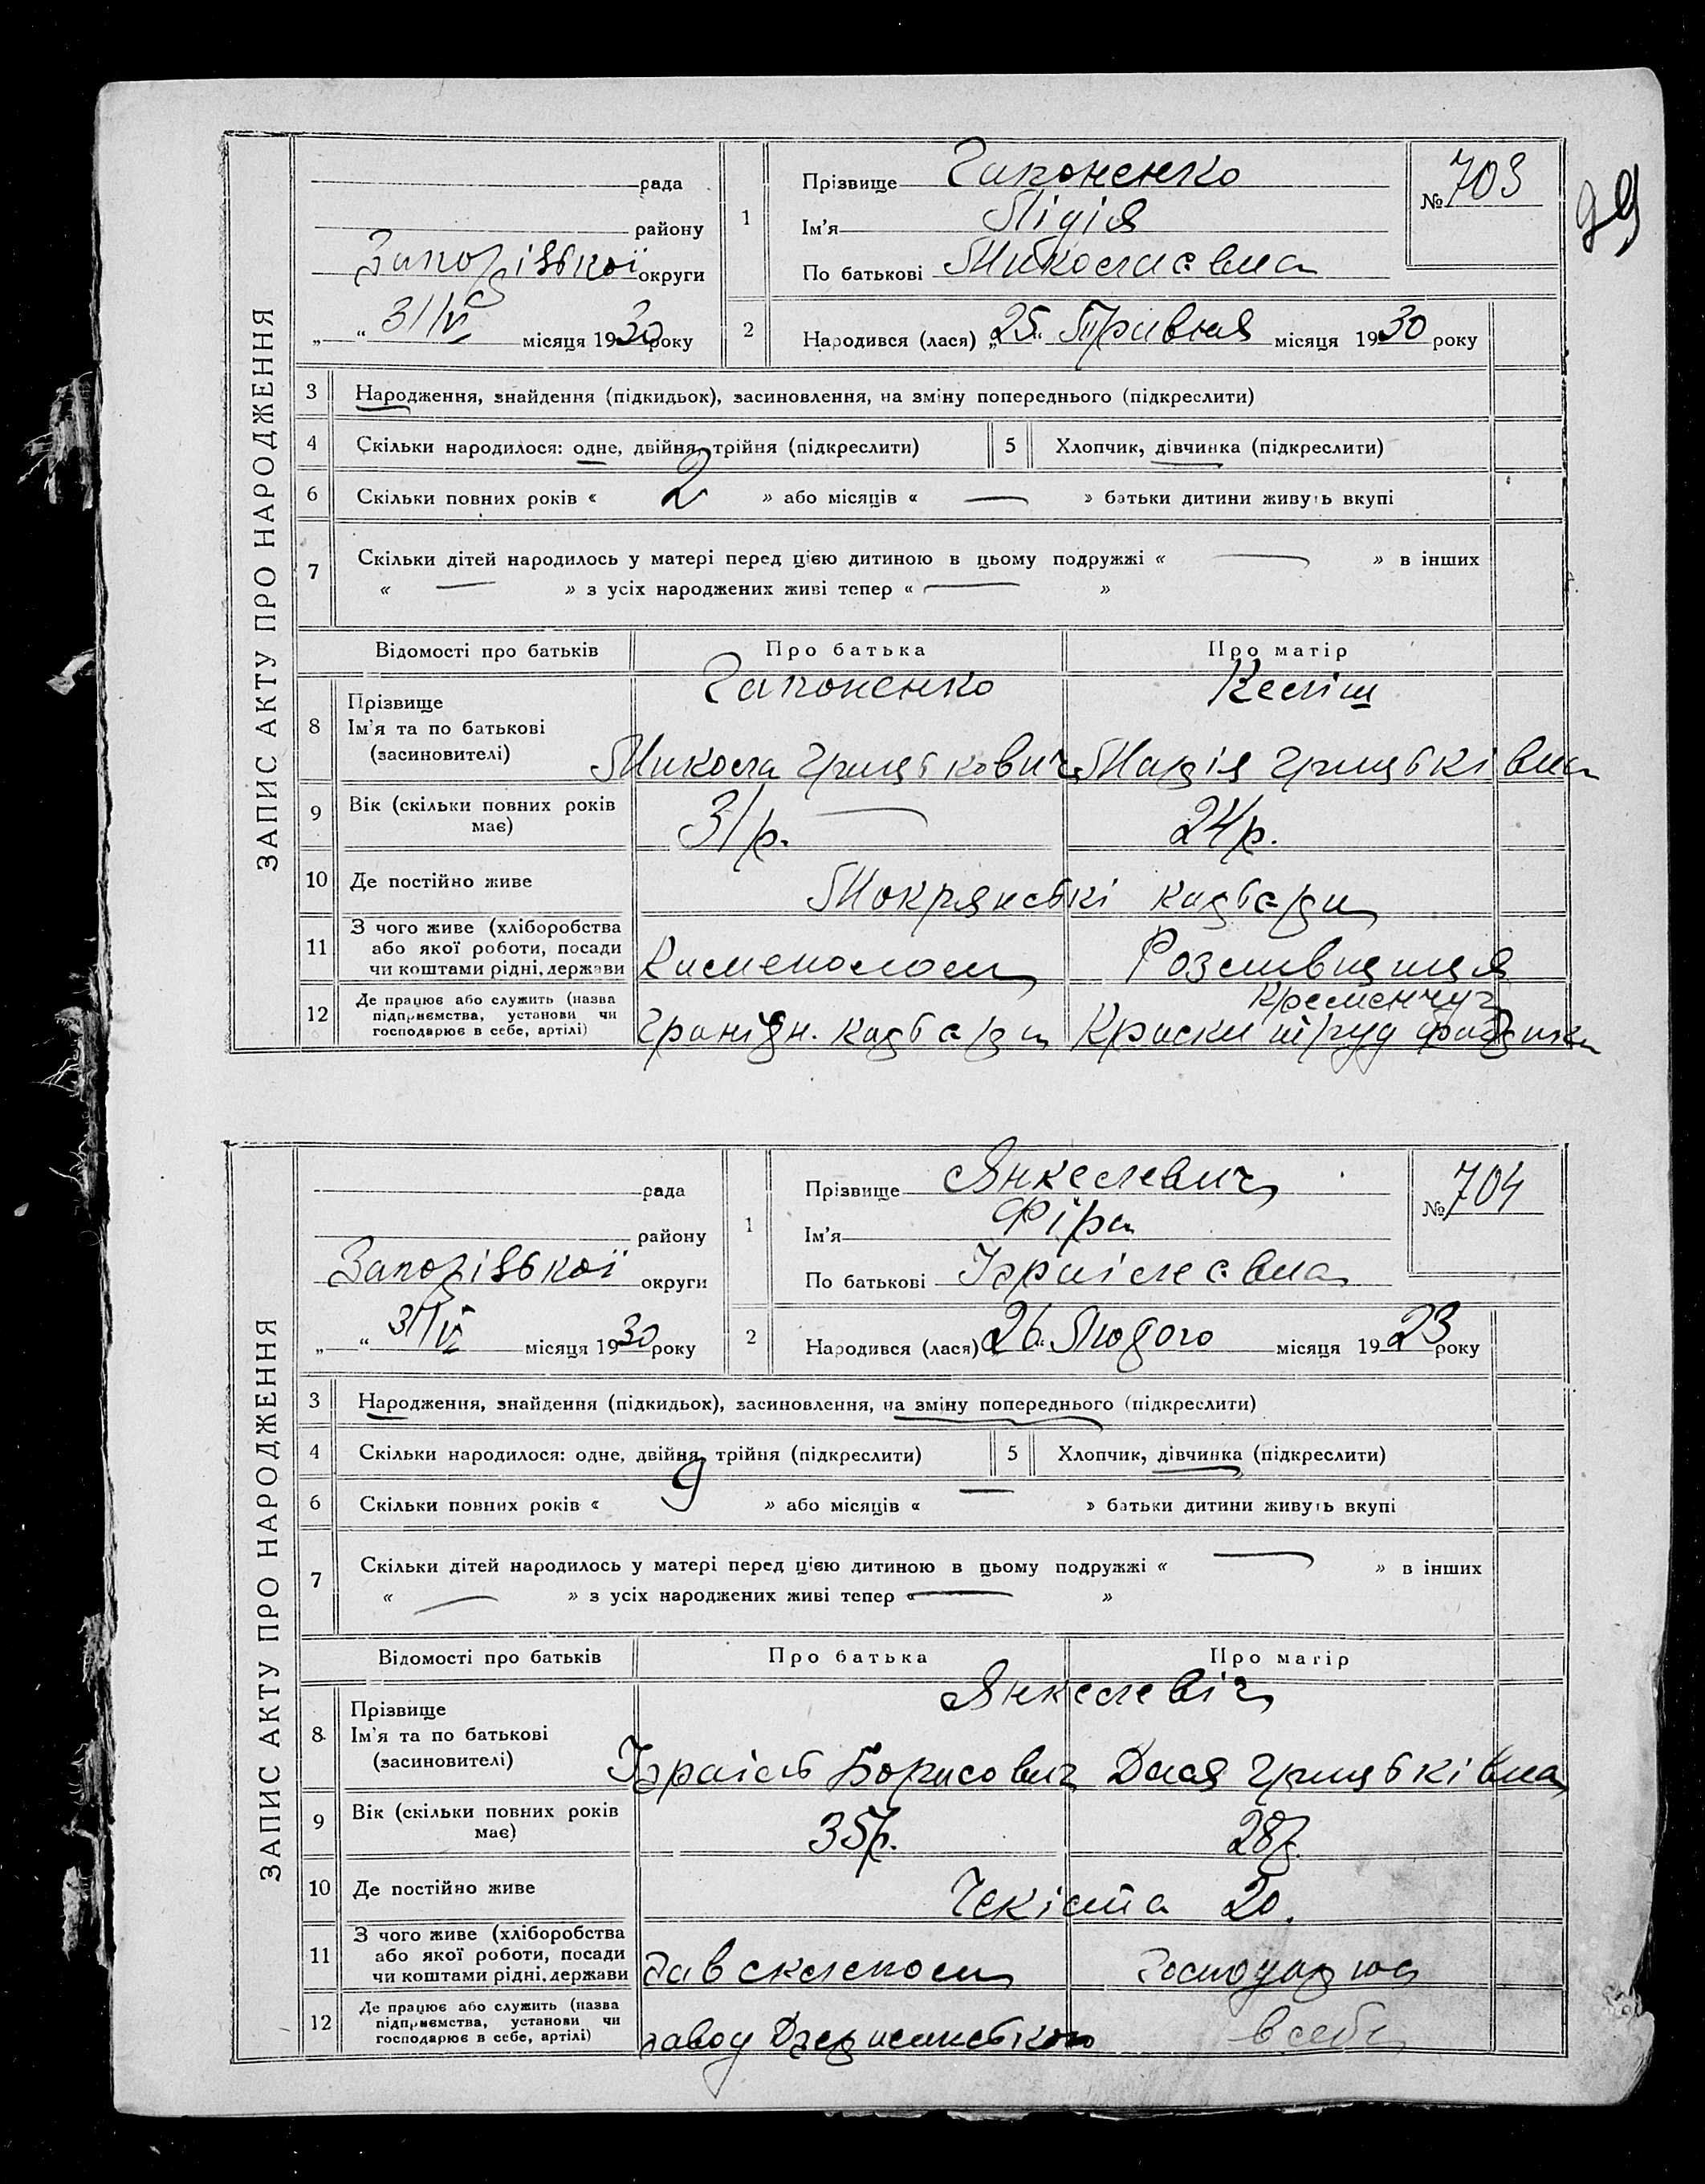 99
ЗАПИС АКТУ ПРО НАРОДЖЕННЯ
рада
району
Запорізької округи
„ “ 31/V місяця 1930 року
1 Прізвище Гапоненко
Ім'я Лідія
По батькові Миколаєвна
№ 703
2 Народився (лася) „25“ Травня місяця 1930 року
3 Народження, знайдення (підкидьок), засиновлення, на зміну попереднього (підкреслити)
4 Скільки народилося: одне, двійня, трійня (підкреслити) 5 Хлопчик, дівчинка (підкреслити)
6 Скільки повних років « 2 » або місяців « — » батьки дитини живуть вкупі
7 Скільки дітей народилось у матері перед цією дитиною в цьому подружжі « — » в інших
« — » з усіх народжених живі тепер « — »
Відомості про батьків Про батька Про матір
8 Прізвище Гапоненко
Ім'я та по батькові
(засиновителі) Микола Грицькович Марія Грицьківна
9 Вік (скільки повних років має) 31 р. — 24 р.
10 Де постійно живе Мокрянські кар'єри
11 З чого живе (хліборобства
або якої роботи, посади
чи коштами рідні, держави Розливщиця
12 Де працює або служить (назва
підприємства, установи чи
господарює в себе, артілі) Кременчуг
ЗАПИС АКТУ ПРО НАРОДЖЕННЯ
рада
району
Запорізької округи
„ “ 31/V місяця 1930 року
1 Прізвище Янкелевич
Ім'я Фіра
По батькові Ізраілевна
№ 704
2 Народився (лася) „26“ Лютого місяця 1923 року
3 Народження, знайдення (підкидьок), засиновлення, на зміну попереднього (підкреслити)
4 Скільки народилося: одне, двійня, трійня (підкреслити) 5 Хлопчик, дівчинка (підкреслити)
6 Скільки повних років « 9 » або місяців « — » батьки дитини живуть вкупі
7 Скільки дітей народилось у матері перед цією дитиною в цьому подружжі « — » в інших
« — » з усіх народжених живі тепер « — »
Відомості про батьків Про батька Про матір
8 Прізвище Янкелевіч
Ім'я та по батькові
(засиновителі) Ізраіль Борисович Грицьківна
9 Вік (скільки повних років має) 35 р. 28 р.
10 Де постійно живе Чекіста 20.
11 З чого живе (хліборобства
або якої роботи, посади
чи коштами рідні, держави Зав складом
12 Де працює або служить (назва
підприємства, установи чи
господарює в себе, артілі) завод Дзержинського в себе